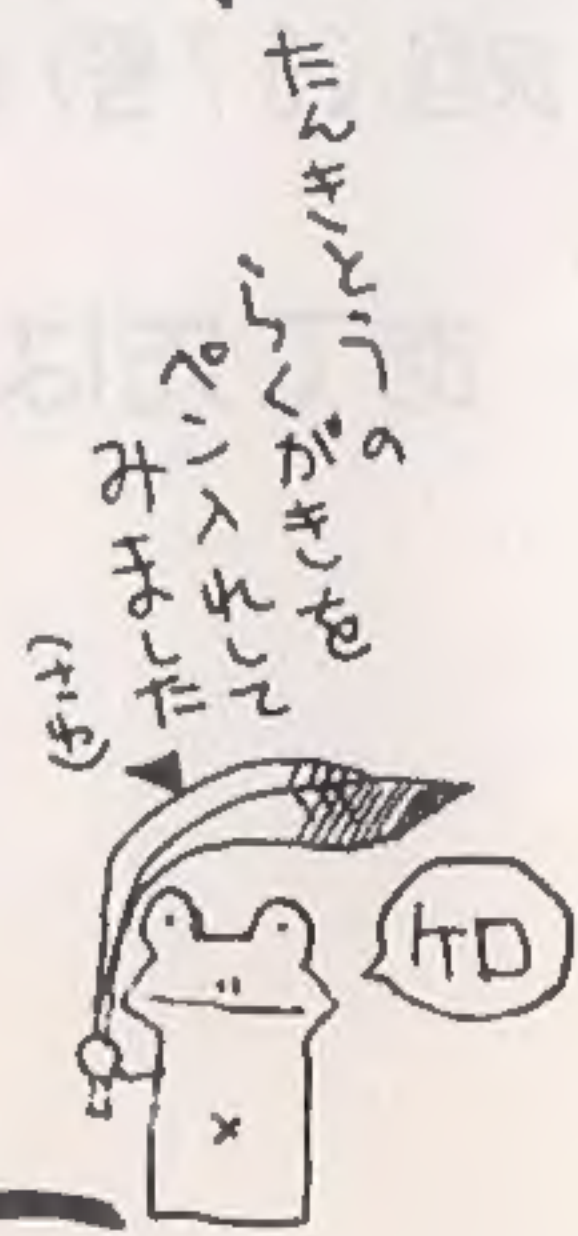 たんきとうの
らくがきを
ペン入れして
みました
ケロ